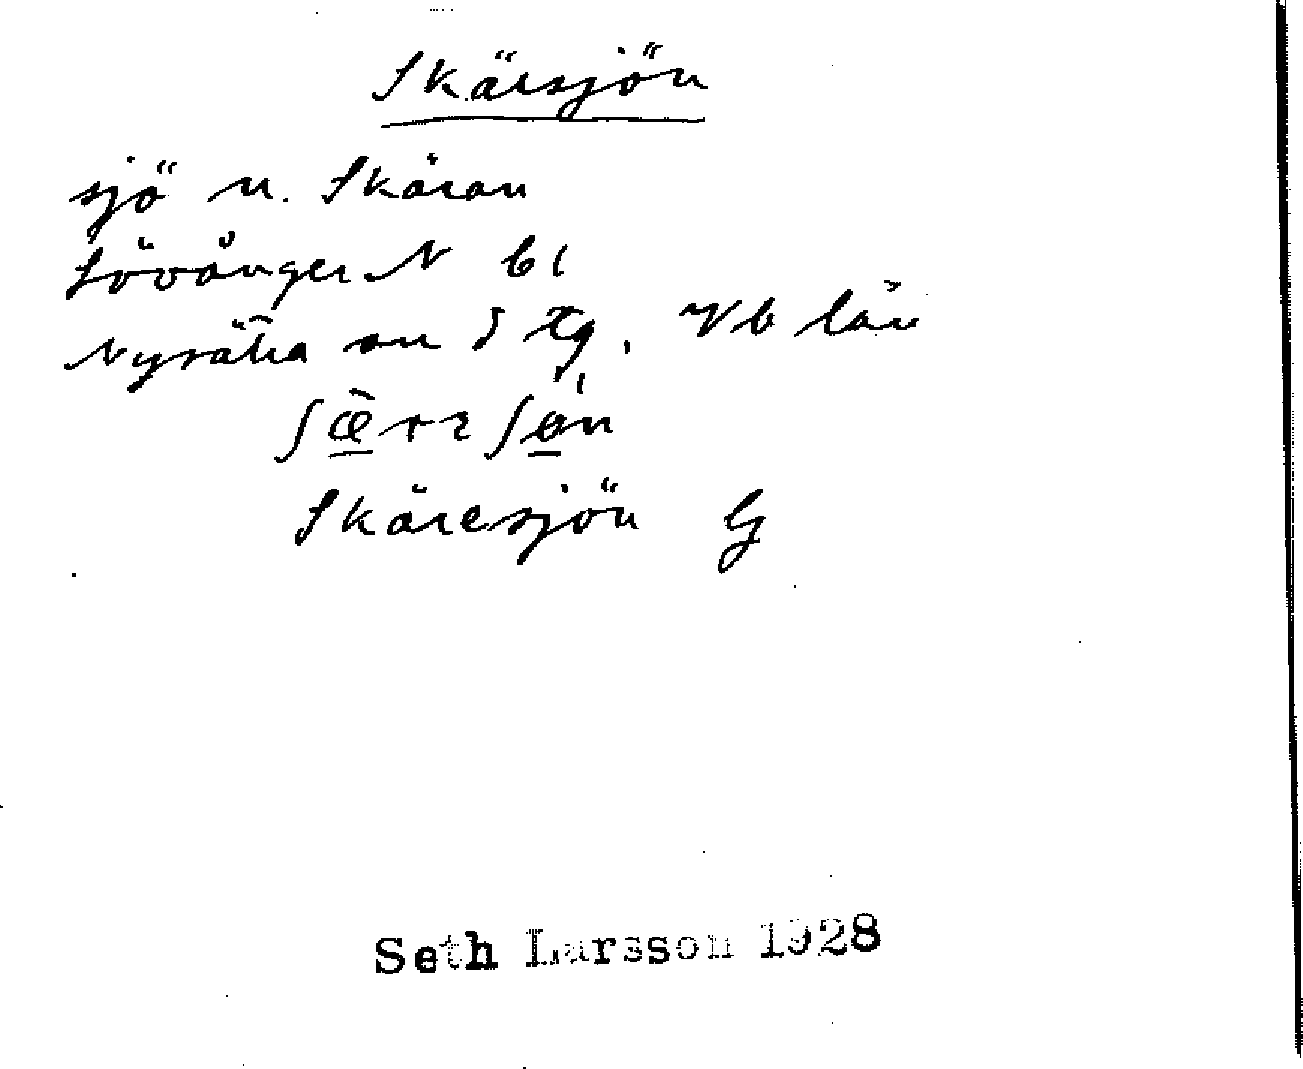 Skärsjön
sjö n. Skäran
Lövånger N bl
Nysätra sn Vb län
Skäresjön G
Seth Larsson 1928